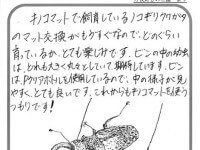 キノコマットで飼育しているノコギリクワガタ
のマット交換がもうすぐなので、どのぐらい
育っているか、とても楽しみです。ビンの中の幼虫
は、とれも大きく丸々としていて、期待しています。ビン
は、Pクリアボトルを使用しているので、中の様子が見
やすく、とても良いです。これからもキノコマットを使う
つもりです!